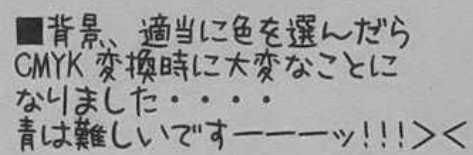 ■背景、適当に色を選んだら
CMYK変換時に大変なことに
なりました・・・・
青は難しいですーーーッ!!!><